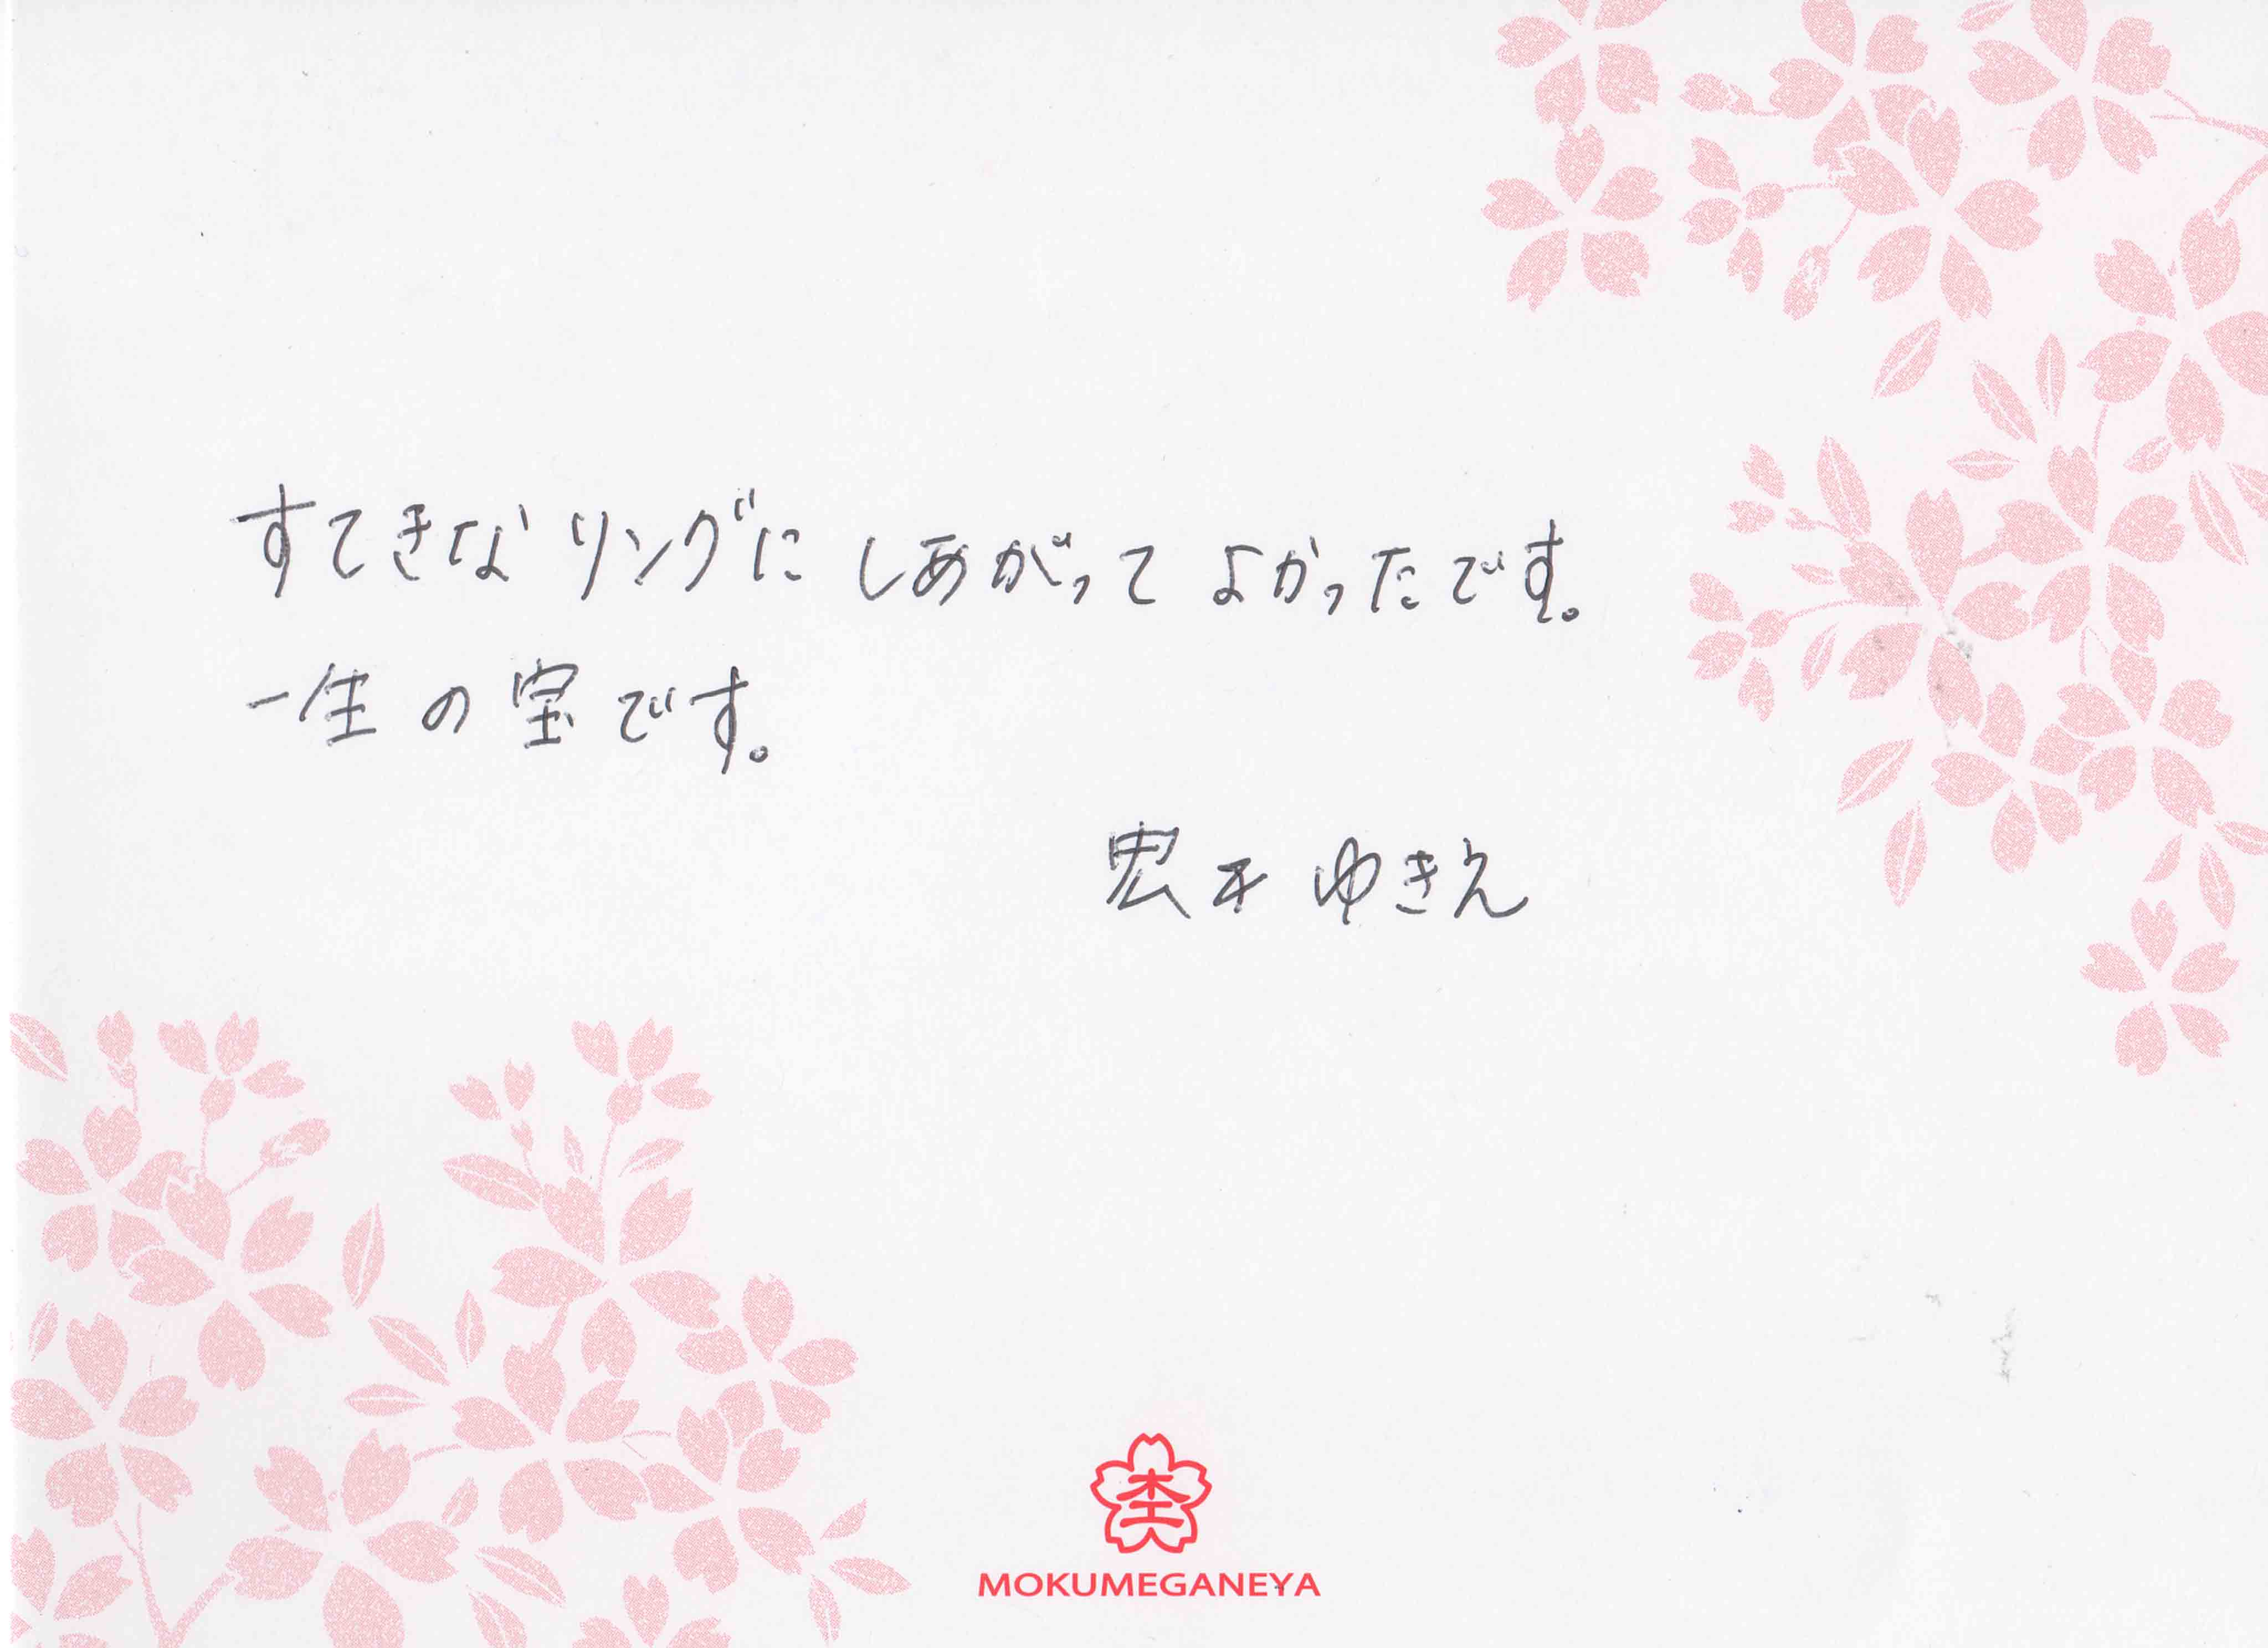 すてきなリングに しあがって よかったです。
一生の宝です。
ゆきえ
MOKUMEGANEYA